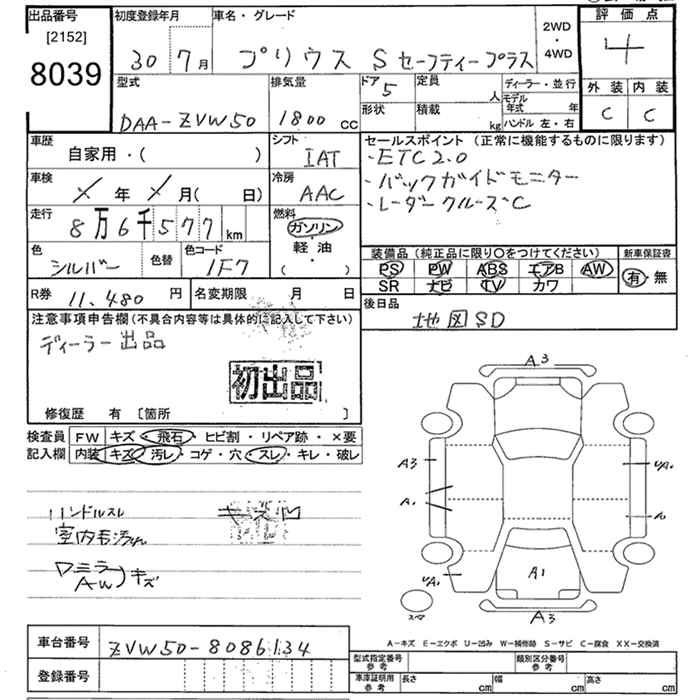 出品番号
[2152]
8039
初度登録年月
30 7月
車名・グレード
プリウス S セーフティープラス
2WD
・
4WD
評価点
4
型式
DAA-ZVW50
排気量
1800 cc
ドア
5
定員
人
形状
積載
kg
ディーラー・並行
モデル年式 年
ハンドル 左・右
外装 内装
C C
車歴
自家用・( )
シフト
IAT
車検
× 年 × 月( 日)
冷房
AAC
走行
8万6千577km
燃料
ガソリン
・
軽・油
・
( )
色
シルバー
色替
色コード
1F7
R券
11,480 円
名変期限 月 日
セールスポイント (正常に機能するものに限ります)
・ETC2.0
・バックガイドモニター
・レーダークルーズC
装備品 (純正品に限り○をつけてください)
PS PW ABS エアB AW
SR ナビ TV カワ
新車保証書
有・無
後日品
地図SD
注意事項申告欄(不具合内容等は具体的に記入して下さい)
ディーラー出品
初出品
修復歴 有 [箇所 ]
検査員
記入欄
FW キズ・飛石・ヒビ割・リペア跡・×要
内装 キズ・汚レ・コゲ・穴・スレ・キレ・破レ
ハンドルスレ
キズ凹
ワミラー
AW キズ
A3
A3
A1
U/A1
A1
U/A1
A1
A3
スペア
A-キズ E-エクボ U-凹み W-補修跡 S-サビ C-腐食 XX-交換済
車台番号
ZVW50-8086134
登録番号
型式指定番号
参考
類別区分番号
参考
車庫証明用
参考
長さ cm
幅 cm
高さ cm